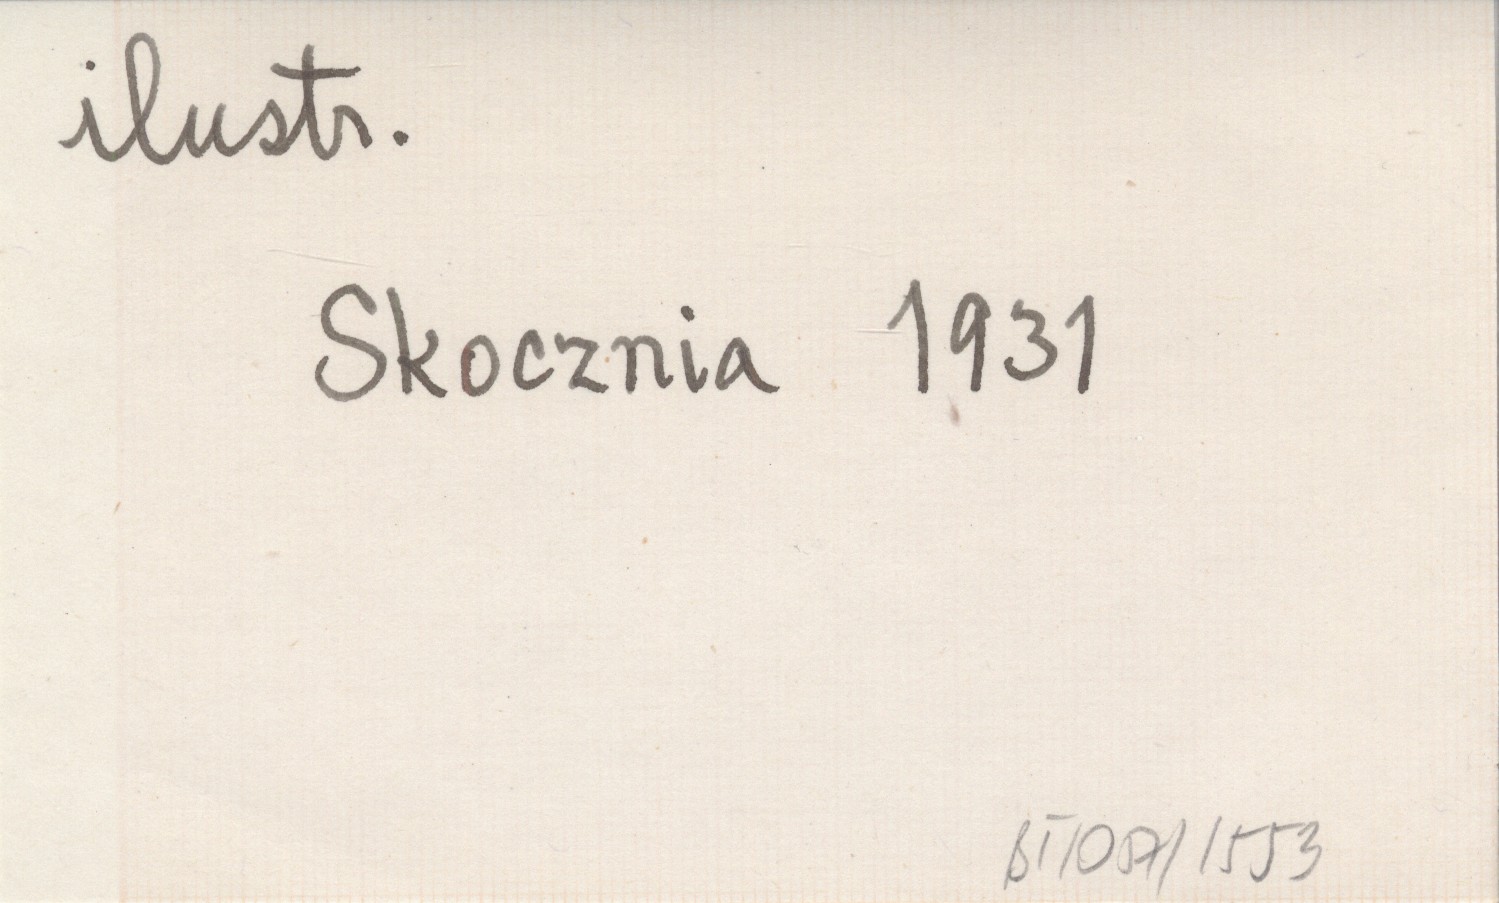 ilustr.
Skocznia 1931
BI/087/1553